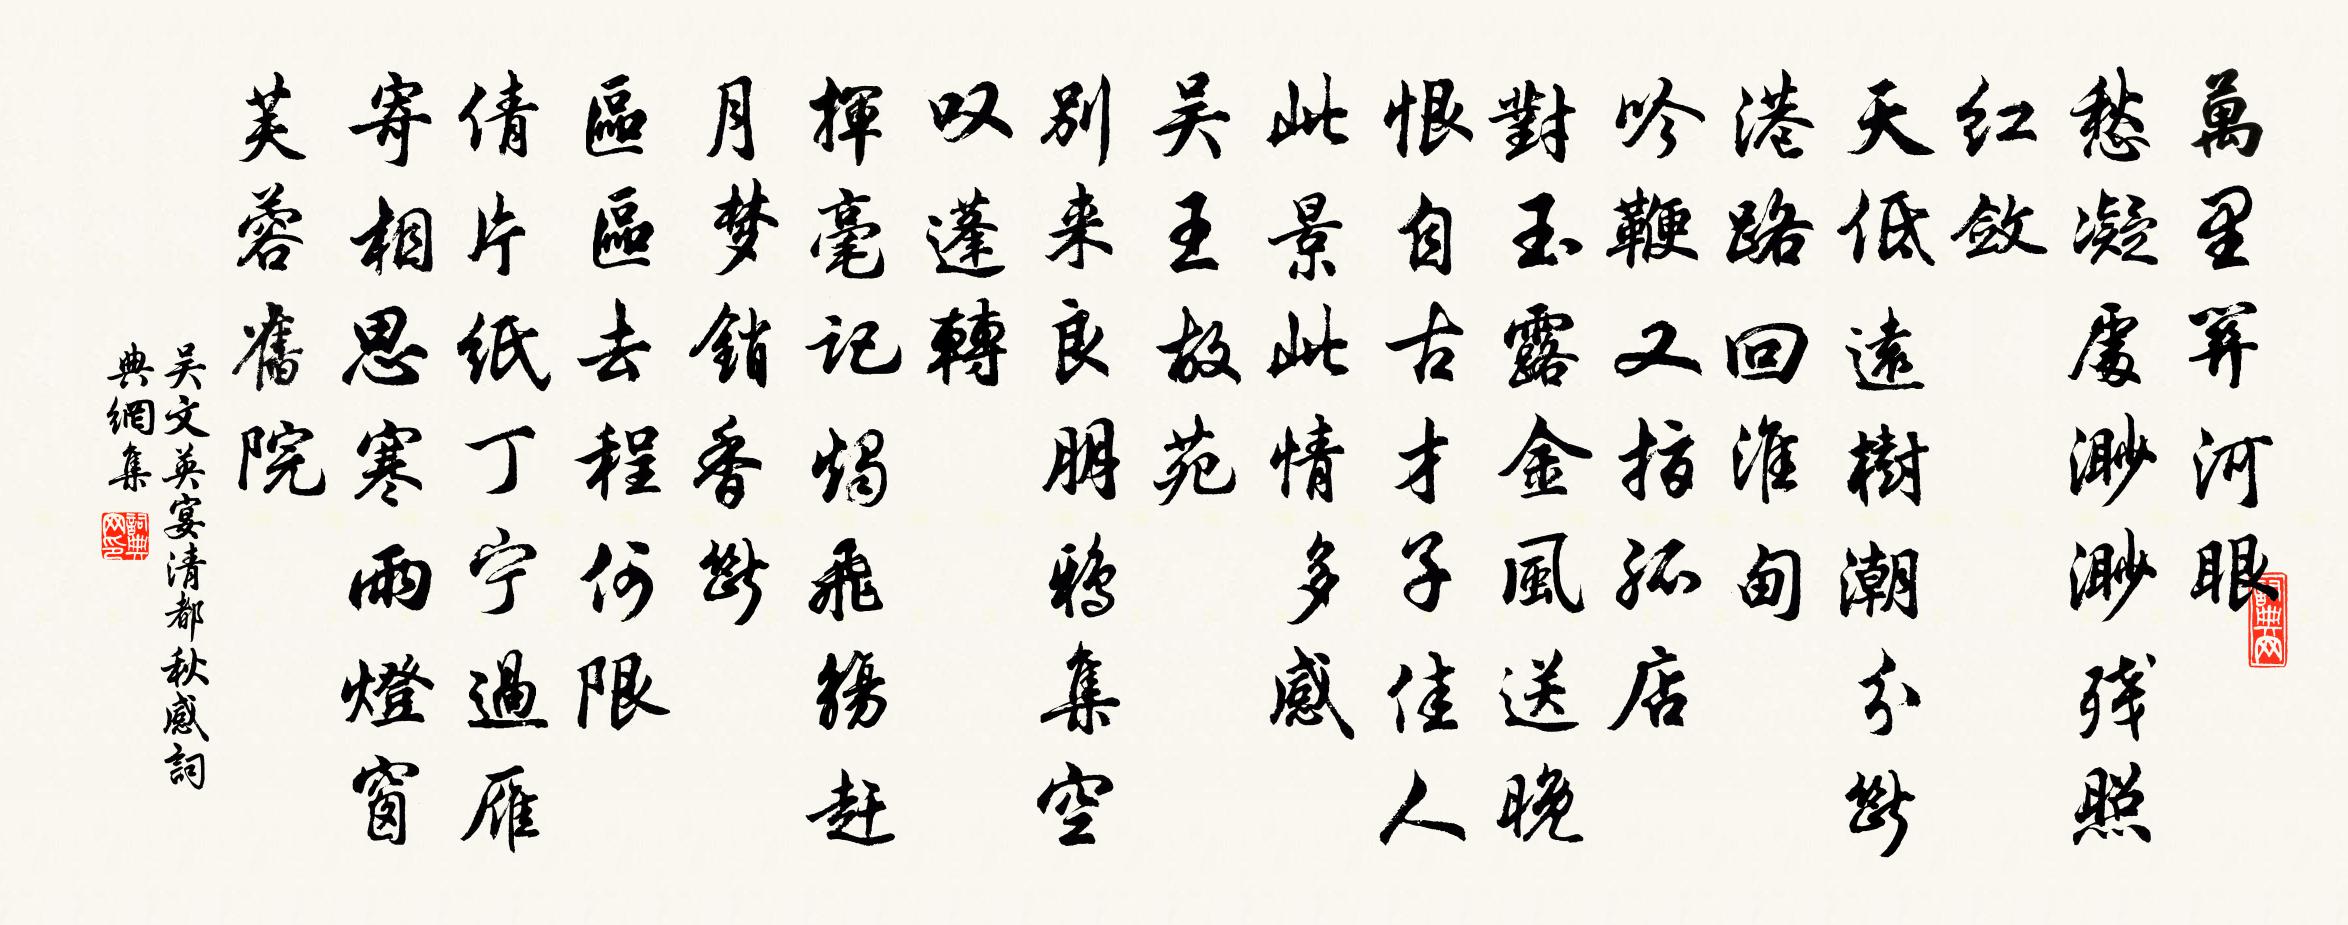 萬里關河眼
愁凝處渺渺残照
红斂
天低遠樹潮分斷
港路回淮甸
吟鞭又指孤店
對玉露金風送晚
恨自古才子佳人
此景此情多感
吴王故苑
别来良朋鴉集空
叹蓬轉
揮毫记燭飛觴赶
月梦銷香斷
區區去程何限
倩片紙丁宁過雁
寄相思寒雨燈窗
芙蓉舊院
吴文英宴清都秋感詞
典網集
詞典网印
詞典网